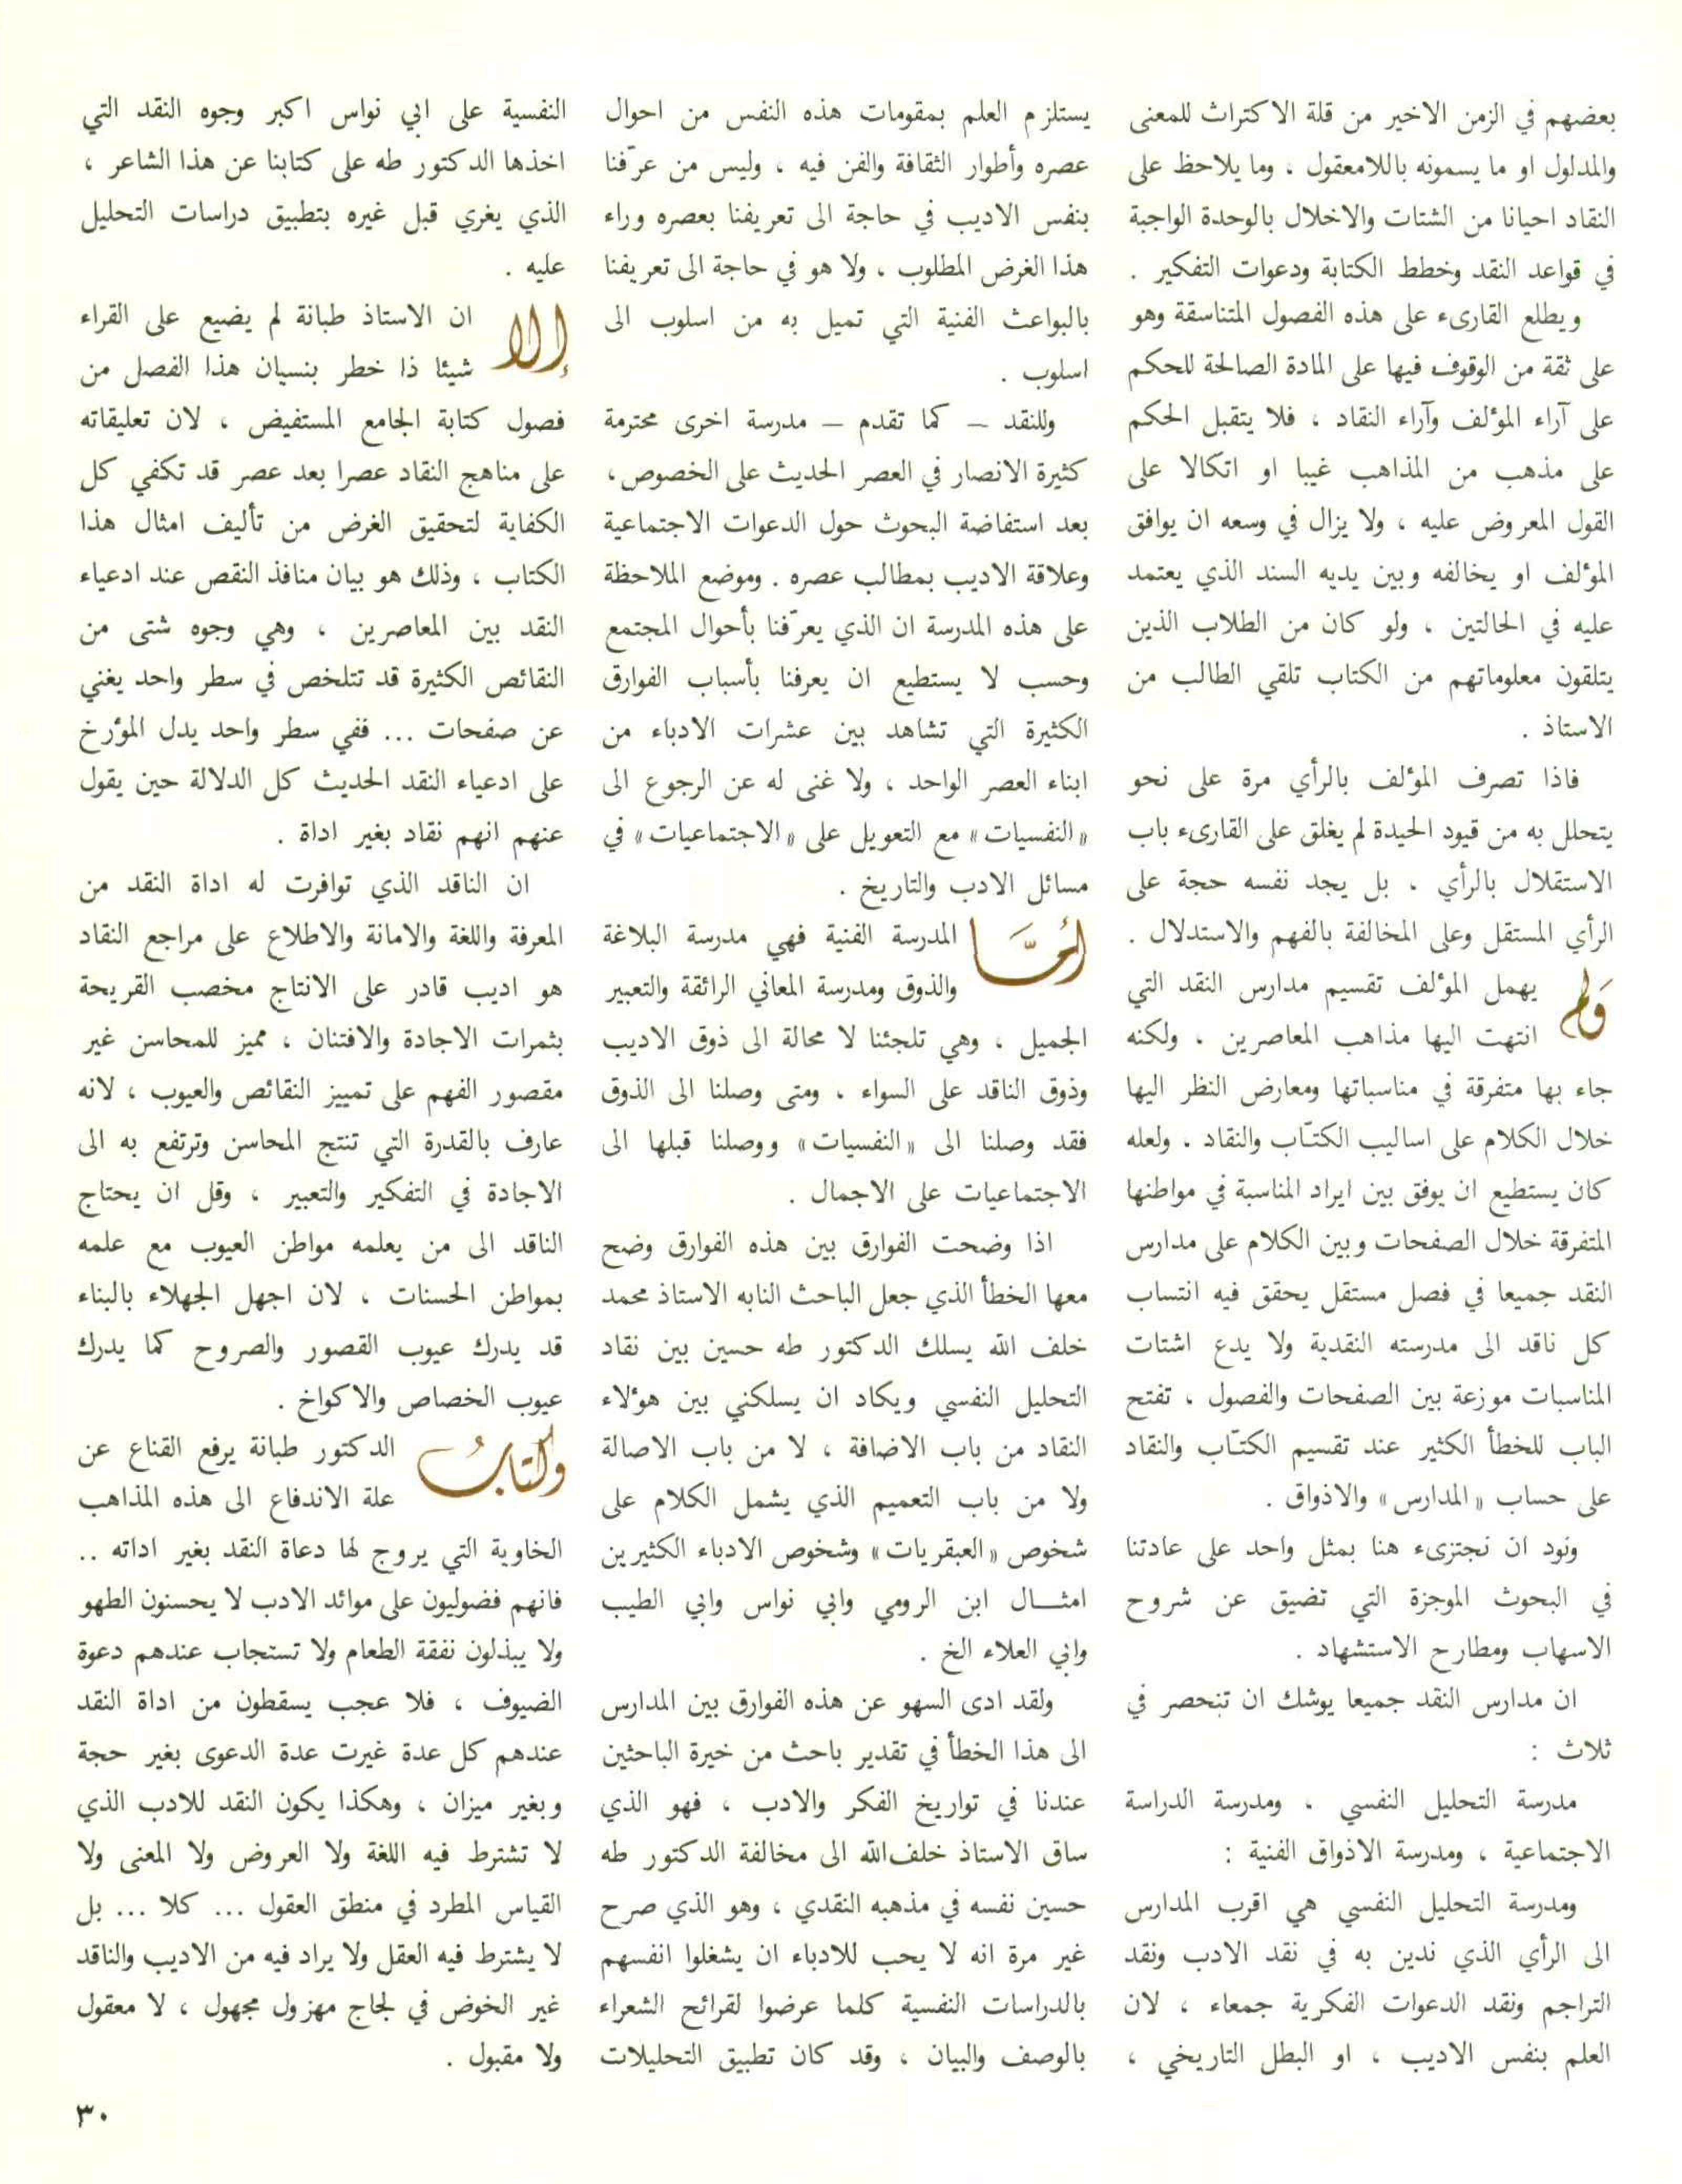 بعضهم في الزمن الاخير من قلة الاكتراث للمعنى
والمدلول او ما يسمونه باللامعقول ، وما يلاحظ على
النقاد احيانا من الشتات والاخلال بالوحدة الواجبة
في قواعد النقد وخطط الكتابة ودعوات التفكير .
ويطلع القارىء على هذه الفصول المتناسقة وهو
على ثقة من الوقوف فيها على المادة الصالحة للحكم
على آراء المؤلف وآراء النقاد ، فلا يتقبل الحكم
على مذهب من المذاهب غيبا او اتكالا على
القول المعروض عليه ، ولا يزال في وسعه ان يوافق
المؤلف او يخالفه وبين يديه السند الذي يعتمد
عليه في الحالتين ، ولو كان من الطلاب الذين
يتلقون معلوماتهم من الكتاب تلقي الطالب من
الاستاذ .
فاذا تصرف المؤلف بالرأي مرة على نحو
يتحلل به من قيود الحيدة لم يغلق على القارىء باب
الاستقلال بالرأي . بل يجد نفسه حجة على
الرأي المستقل وعلى المخالفة بالفهم والاستدلال .
وَلم يهمل المؤلف تقسيم مدارس النقد التي
انتهت اليها مذاهب المعاصرين ، ولكنه
جاء بها متفرقة في مناسباتها ومعارض النظر اليها
خلال الكلام على اساليب الكتّاب والنقاد . ولعله
كان يستطيع ان يوفق بين ايراد المناسبة في مواطنها
المتفرقة خلال الصفحات وبين الكلام على مدارس
النقد جميعا في فصل مستقل يحقق فيه انتساب
كل ناقد الى مدرسته النقدية ولا يدع اشتات
المناسبات موزعة بين الصفحات والفصول ، تفتح
الباب للخطأ الكثير عند تقسيم الكتّاب والنقاد
على حساب «المدارس» والاذواق .
ونود ان نجتزىء هنا بمثل واحد على عادتنا
في البحوث الموجزة التي تضيق عن شروح
الاسهاب ومطارح الاستشهاد .
ان مدارس النقد جميعا يوشك ان تنحصر في
ثلاث :
مدرسة التحليل النفسي . ومدرسة الدراسة
الاجتماعية ، ومدرسة الاذواق الفنية :
ومدرسة التحليل النفسي هي اقرب المدارس
الى الرأي الذي ندين به في نقد الادب ونقد
التراجم ونقد الدعوات الفكرية جمعاء ، لان
العلم بنفس الاديب ، او البطل التاريخي ،
يستلزم العلم بمقومات هذه النفس من احوال
عصره وأطوار الثقافة والفن فيه ، وليس من عرّفنا
بنفس الاديب في حاجة الى تعريفنا بعصره وراء
هذا الغرض المطلوب ، ولا هو في حاجة الى تعريفنا
بالبواعث الفنية التي تميل به من اسلوب الى
اسلوب .
وللنقد – كما تقدم – مدرسة اخرى محترمة
كثيرة الانصار في العصر الحديث على الخصوص ،
بعد استفاضة البحوث حول الدعوات الاجتماعية
وعلاقة الاديب بمطالب عصره . وموضع الملاحظة
على هذه المدرسة ان الذي يعرّفنا بأحوال المجتمع
وحسب لا يستطيع ان يعرفنا بأسباب الفوارق
الكثيرة التي تشاهد بين عشرات الادباء من
ابناء العصر الواحد ، ولا غنى له عن الرجوع الى
«النفسيات» مع التعويل على «الاجتماعيات» في
مسائل الادب والتاريخ .
أمَّا المدرسة الفنية فهي مدرسة البلاغة
والذوق ومدرسة المعاني الرائقة والتعبير
الجميل ، وهي تلجئنا لا محالة الى ذوق الاديب
وذوق الناقد على السواء ، ومتى وصلنا الى الذوق
فقد وصلنا الى «النفسيات» ووصلنا قبلها الى
الاجتماعيات على الاجمال .
اذا وضحت الفوارق بين هذه الفوارق وضح
معها الخطأ الذي جعل الباحث النابه الاستاذ محمد
خلف الله يسلك الدكتور طه حسين بين نقاد
التحليل النفسي ويكاد ان يسلكني بين هؤلاء
النقاد من باب الاضافة ، لا من باب الاصالة
ولا من باب التعميم الذي يشمل الكلام على
شخوص «العبقريات» وشخوص الادباء الكثيرين
امثـــال ابن الرومي وابي نواس وابي الطيب
وابي العلاء الخ .
ولقد ادى السهو عن هذه الفوارق بين المدارس
الى هذا الخطأ في تقدير باحث من خيرة الباحثين
عندنا في تواريخ الفكر والادب ، فهو الذي
ساق الاستاذ خلف‌الله الى مخالفة الدكتور طه
حسين نفسه في مذهبه النقدي ، وهو الذي صرح
غير مرة انه لا يحب للادباء ان يشغلوا انفسهم
بالدراسات النفسية كلما عرضوا لقرائح الشعراء
بالوصف والبيان ، وقد كان تطبيق التحليلات
النفسية على ابي نواس اكبر وجوه النقد التي
اخذها الدكتور طه على كتابنا عن هذا الشاعر ،
الذي يغري قبل غيره بتطبيق دراسات التحليل
عليه .
إلا ان الاستاذ طبانة لم يضيع على القراء
شيئا ذا خطر بنسيان هذا الفصل من
فصول كتابة الجامع المستفيض ، لان تعليقاته
على مناهج النقاد عصرا بعد عصر قد تكفي كل
الكفاية لتحقيق الغرض من تأليف امثال هذا
الكتاب ، وذلك هو بيان منافذ النقص عند ادعياء
النقد بين المعاصرين ، وهي وجوه شتى من
النقائص الكثيرة قد تتلخص في سطر واحد يغني
عن صفحات ... ففي سطر واحد يدل المؤرخ
على ادعياء النقد الحديث كل الدلالة حين يقول
عنهم انهم نقاد بغير اداة .
ان الناقد الذي توافرت له اداة النقد من
المعرفة واللغة والامانة والاطلاع على مراجع النقاد
هو اديب قادر على الانتاج مخصب القريحة
بثمرات الاجادة والافتنان ، مميز للمحاسن غير
مقصور الفهم على تمييز النقائص والعيوب ، لانه
عارف بالقدرة التي تنتج المحاسن وترتفع به الى
الاجادة في التفكير والتعبير ، وقل ان يحتاج
الناقد الى من يعلمه مواطن العيوب مع علمه
بمواطن الحسنات ، لان اجهل الجهلاء بالبناء
قد يدرك عيوب القصور والصروح كما يدرك
عيوب الخصاص والاكواخ .
وكتابُ الدكتور طبانة يرفع القناع عن
علة الاندفاع الى هذه المذاهب
الخاوية التي يروج لها دعاة النقد بغير اداته ..
فانهم فضوليون على موائد الادب لا يحسنون الطهو
ولا يبذلون نفقة الطعام ولا تستجاب عندهم دعوة
الضيوف ، فلا عجب يسقطون من اداة النقد
عندهم كل عدة غيرت عدة الدعوى بغير حجة
وبغير ميزان ، وهكذا يكون النقد للادب الذي
لا تشترط فيه اللغة ولا العروض ولا المعنى ولا
القياس المطرد في منطق العقول ... كلا ... بل
لا يشترط فيه العقل ولا يراد فيه من الاديب والناقد
غير الخوض في لجاج مهزول مجهول ، لا معقول
ولا مقبول .
٣٠